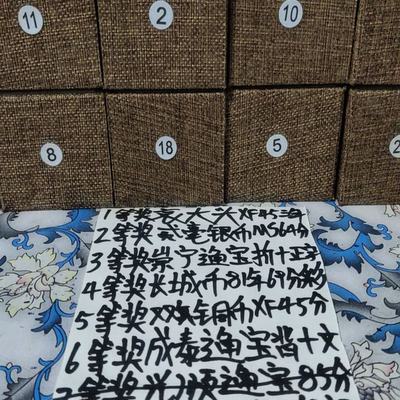 11 2 10
8 18 5 2
1等奖袁大头XF45分
2等奖贰毫银币MS64分
3等奖崇宁通宝折十正字
4等奖长城币81年67分彩
5等奖双旗铜币XF45分
6等奖咸泰通宝背十文
7等奖兴顺通宝85分